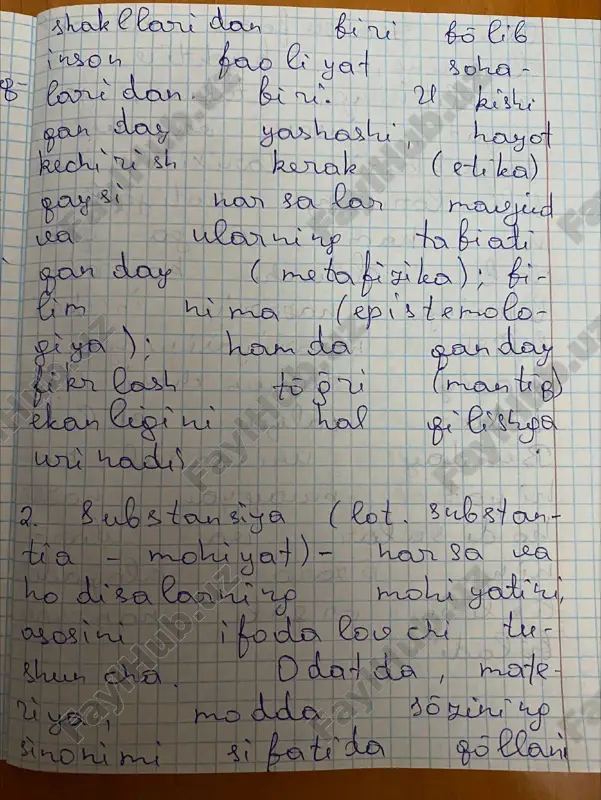 shakllaridan biri bōlib
inson faoliyat soha-
laridan biri. U kishi
qanday yashashi, hayot
kechirish kerak (etika)
qaysi narsalar mavjud
va ularning tabiati
qanday (metafizika); bi-
lim nima (epistemolo-
giya); hamda qanday
fikrlash tōğri (mantiq)
ekanligini hal qilishga
urinadi
2. Substansiya (lot. substan-
tia - mohiyat) - narsa va
hodisalarning mohiyatini,
asosini ifodalovchi tu-
shuncha. Odatda, mate-
riya, modda sōzining
sinonimi sifatida qōllani
FayllHub.uz